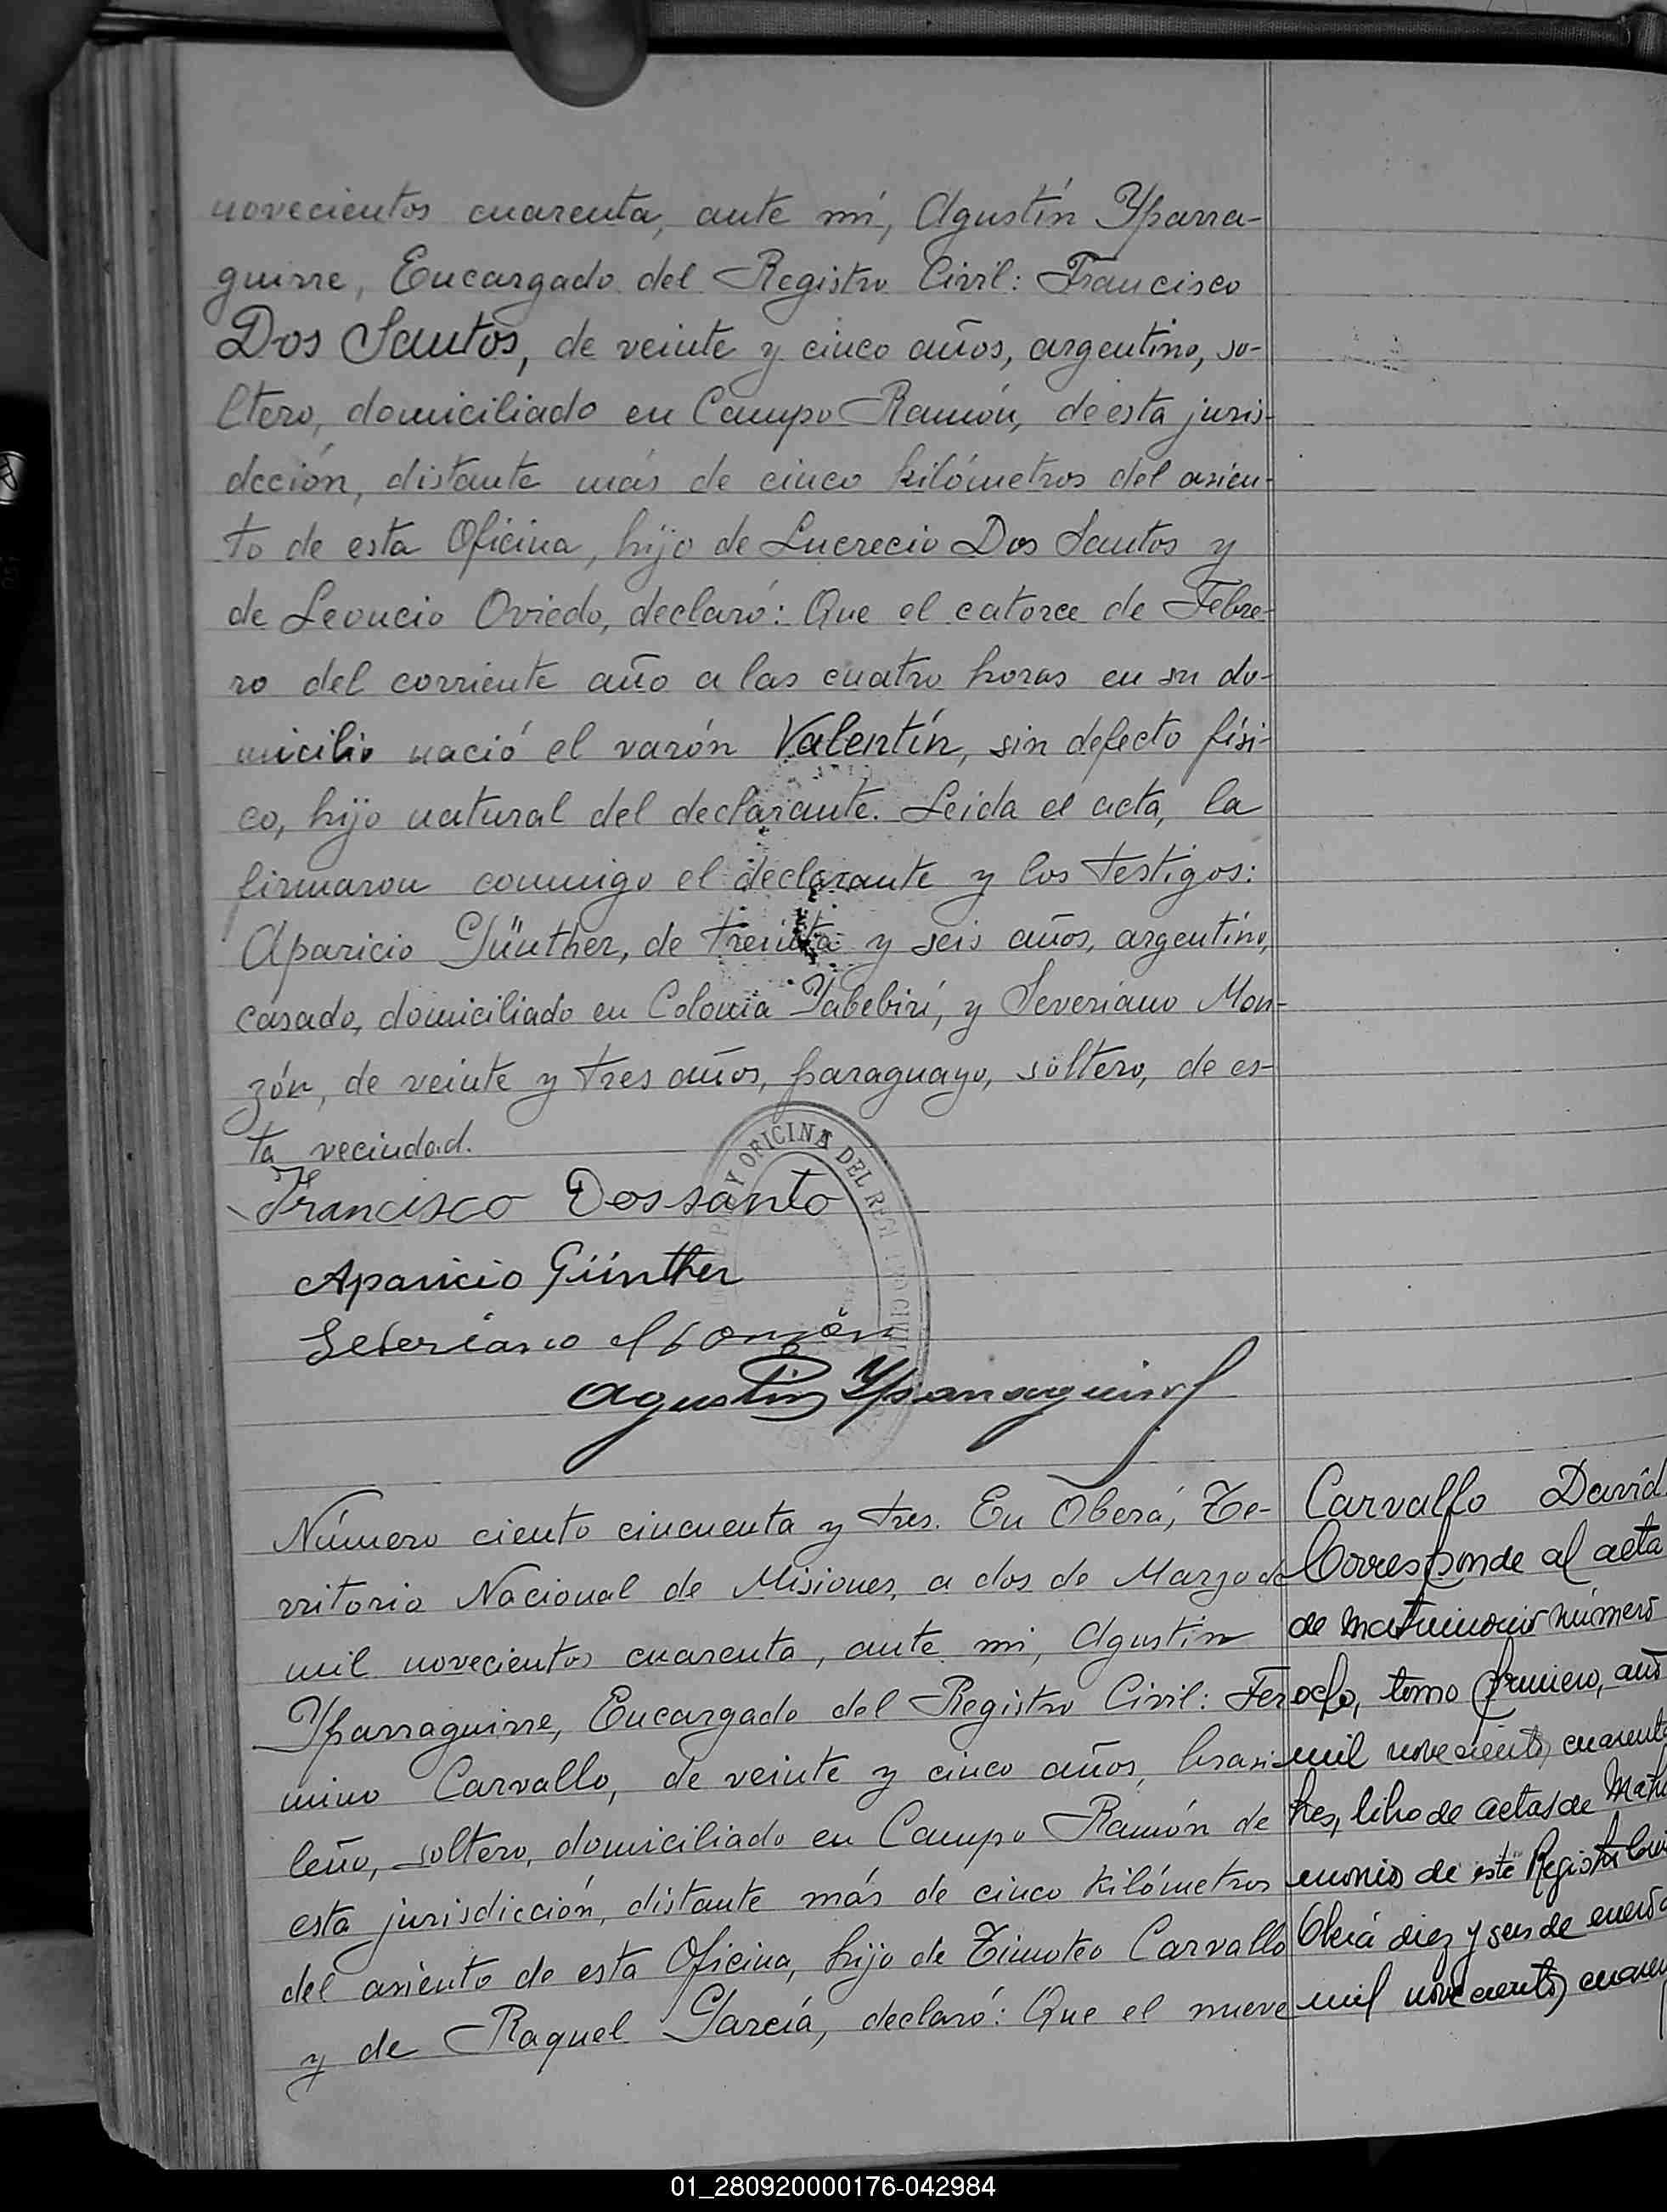 novecientos cuarenta, ante mí, Agustín Yparra-
guirre, Encargado del Registro Civil: Francisco
Dos Santos, de veinte y cinco años, argentino, so-
ltero, domiciliado en Campo Ramón, de esta juris-
dcción, distante más de cinco kilómetros del asien-
to de esta Oficina, hijo de Lucrecio Dos Santos y
de Leoncio Oviedo, declaró: Que el catorce de Febre-
ro del corriente año a las cuatro horas en su do-
micilio nació el varón Valentín, sin defecto físi-
co, hijo natural del declarante. Leida el acta, la
firmaron conmigo el declarante y los testigos:
Aparicio Günther, de treinta y seis años, argentino,
casado, domiciliado en Colonia Yabebirí, y Severiano Mon-
zón, de veinte y tres años, paraguayo, soltero, de es-
ta vecindad.
Y OFICINA DEL REG
CIVIL
Francisco Dossanto
Aparicio Günther
Seberiano Monzón
Agustin Yparraguirre
Número ciento cincuenta y tres. En Oberá, Te-
rritorio Nacional de Misiones, a dos de Marzo de
mil novecientos cuarenta, ante mi, Agustín
Yparraguirre, Encargado del Registro Civil: Fer
mino Carvallo, de veinte y cinco años, brasi
leño, soltero, domiciliado en Campo Ramón de
esta jurisdicción, distante más de cinco kilómetros
del asiento de esta Oficina, hijo de Timoteo Carvallo
y de Raquel García, declaró: Que el nueve
Carvallo David.
Corresponde al acta
de matrimonio número
ocho, tomo primero, año
mil novecientos cuarenta
tres, libro de actas de Matri
monios de este Registro Civi
Oberá diez y seis de enero d
mil novecientos cuaren
01_280920000176-042984